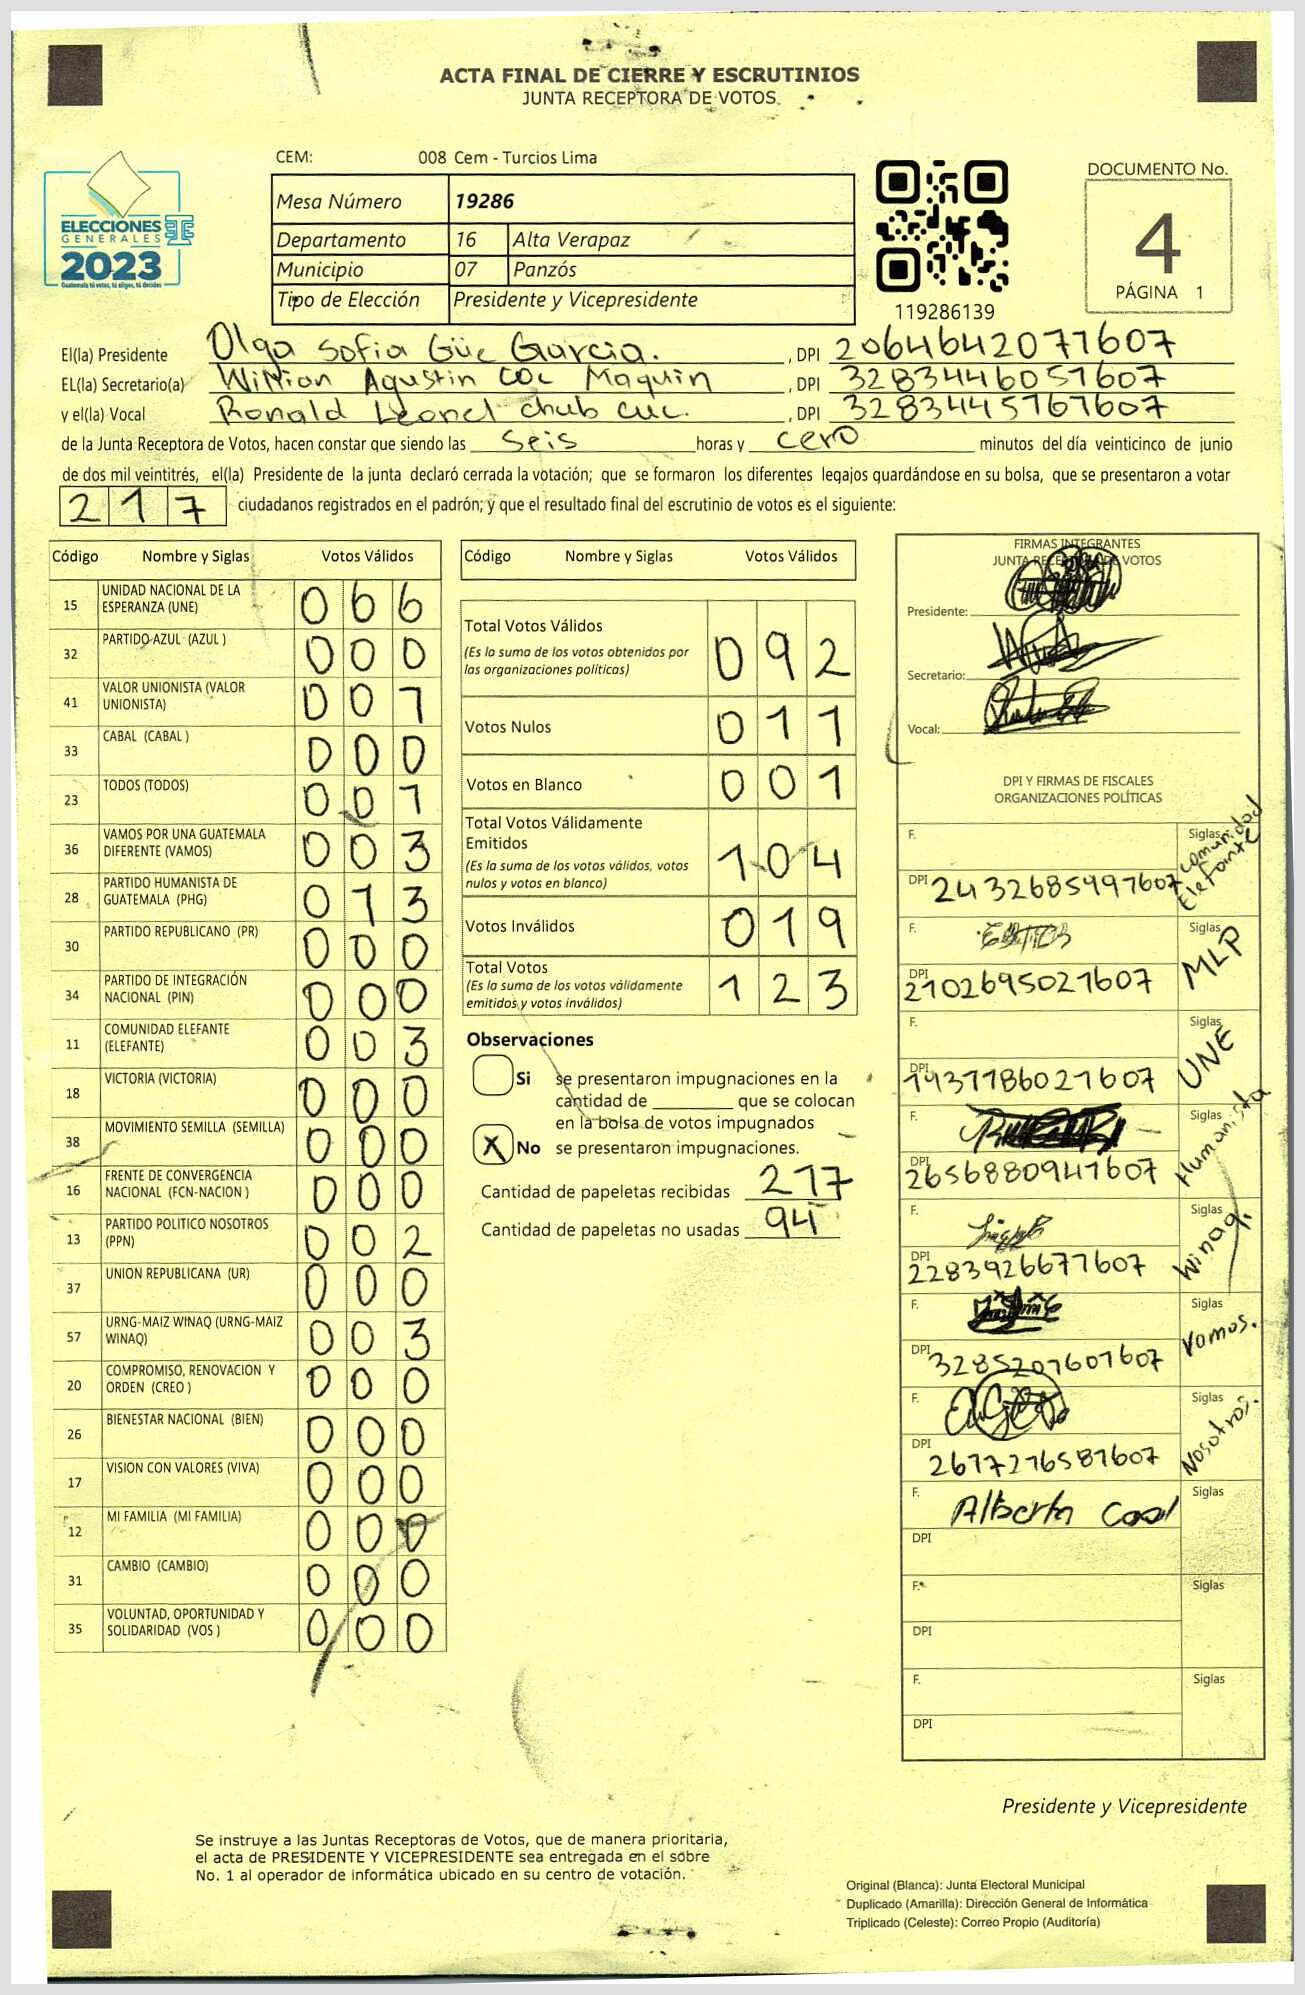 ACTA FINAL DE CIERRE Y ESCRUTINIOS
JUNTA RECEPTORA DE VOTOS
CEM: 008 Cem - Turcios Lima
Mesa Número 19286
Departamento 16 Alta Verapaz
Municipio 07 Panzós
Tipo de Elección Presidente y Vicepresidente
ELECCIONES
GENERALES
2023
Guatemala tú votas, tú eliges, tú decides
119286139
DOCUMENTO No.
4
PÁGINA 1
El(la) Presidente Olga Sofia Güe Garcia. , DPI 2064642071607
EL(la) Secretario(a) Willian Agustin COc Maquin , DPI 3283446051607
y el(la) Vocal Ronald Leonel chub cuc. , DPI 3283445761607
de la Junta Receptora de Votos, hacen constar que siendo las seis horas y cero minutos del día veinticinco de junio
de dos mil veintitrés, el(la) Presidente de la junta declaró cerrada la votación; que se formaron los diferentes legajos guardándose en su bolsa, que se presentaron a votar
217 ciudadanos registrados en el padrón; y que el resultado final del escrutinio de votos es el siguiente:
Código Nombre y Siglas Votos Válidos
15 UNIDAD NACIONAL DE LA ESPERANZA (UNE) 066
32 PARTIDO AZUL (AZUL ) 000
41 VALOR UNIONISTA (VALOR UNIONISTA) 001
33 CABAL (CABAL ) 000
23 TODOS (TODOS) 001
36 VAMOS POR UNA GUATEMALA DIFERENTE (VAMOS) 003
28 PARTIDO HUMANISTA DE GUATEMALA (PHG) 013
30 PARTIDO REPUBLICANO (PR) 000
34 PARTIDO DE INTEGRACIÓN NACIONAL (PIN) 000
11 COMUNIDAD ELEFANTE (ELEFANTE) 003
18 VICTORIA (VICTORIA) 000
38 MOVIMIENTO SEMILLA (SEMILLA) 000
16 FRENTE DE CONVERGENCIA NACIONAL (FCN-NACION ) 000
13 PARTIDO POLITICO NOSOTROS (PPN) 002
37 UNION REPUBLICANA (UR) 000
57 URNG-MAIZ WINAQ (URNG-MAIZ WINAQ) 003
20 COMPROMISO, RENOVACION Y ORDEN (CREO ) 000
26 BIENESTAR NACIONAL (BIEN) 000
17 VISION CON VALORES (VIVA) 000
12 MI FAMILIA (MI FAMILIA) 000
31 CAMBIO (CAMBIO) 000
35 VOLUNTAD, OPORTUNIDAD Y SOLIDARIDAD (VOS ) 000
Código Nombre y Siglas Votos Válidos
Total Votos Válidos 092
(Es la suma de los votos obtenidos por
las organizaciones políticas)
Votos Nulos 011
Votos en Blanco 001
Total Votos Válidamente
Emitidos 104
(Es la suma de los votos válidos, votos
nulos y votos en blanco)
Votos Inválidos 019
Total Votos 123
(Es la suma de los votos válidamente
emitidos y votos inválidos)
Observaciones
Si se presentaron impugnaciones en la
cantidad de ________ que se colocan
en la bolsa de votos impugnados
X No se presentaron impugnaciones.
Cantidad de papeletas recibidas 217
Cantidad de papeletas no usadas 94
FIRMAS INTEGRANTES
JUNTA RECEPTORA DE VOTOS
Presidente:
Secretario:
Vocal:
DPI Y FIRMAS DE FISCALES
ORGANIZACIONES POLÍTICAS
F. Siglas Comunidad Elefante
DPI 2432685991607
F. Siglas MLP
DPI 2102695021607
F. Siglas UNE
DPI 1937786021607
F. Siglas Humanista
DPI 2656880941607
F. Siglas Winaq.
DPI 2283926671607
F. Siglas Vamos.
DPI 3285201601607
F. Siglas Nosotros.
DPI 2677276581607
F. Alberto Siglas
DPI
F. Siglas
DPI
F. Siglas
DPI
Presidente y Vicepresidente
Se instruye a las Juntas Receptoras de Votos, que de manera prioritaria,
el acta de PRESIDENTE Y VICEPRESIDENTE sea entregada en el sobre
No. 1 al operador de informática ubicado en su centro de votación.
Original (Blanca): Junta Electoral Municipal
Duplicado (Amarilla): Dirección General de Informática
Triplicado (Celeste): Correo Propio (Auditoría)